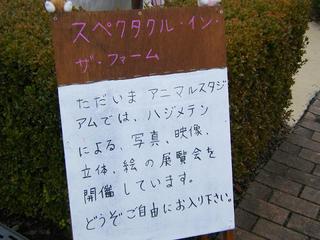 スペクタクル・イン・
ザ・ファーム
ただいま アニマルスタジ
アムでは、ハジメテン
による、写真、映像、
立体、絵の展覧会を
開催しています。
どうぞご自由にお入り下さい。